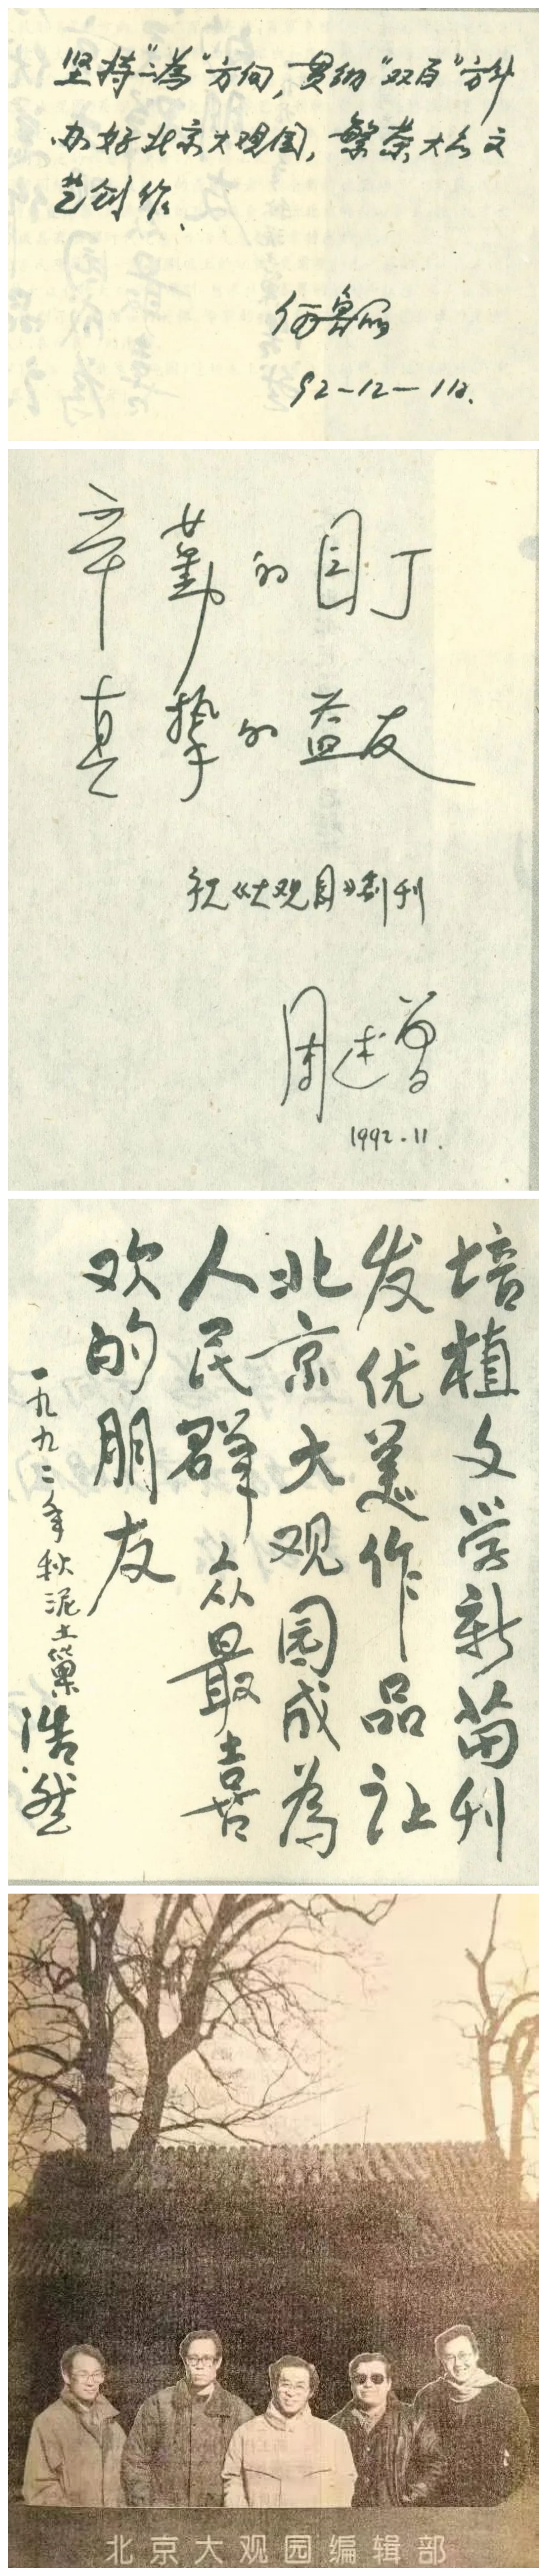 坚持“二为”方向，贯彻“双百”方针
办好北京大观园，繁荣大众文
艺创作、
何鲁丽
92-12-11日.
辛勤的园丁
真挚的益友
祝《大观园》创刊
周述曾
1992.11.
培植文学新苗刊
发优美作品让
北京大观园成為
人民群众最喜
欢的朋友
一九九二年秋泥土巢
浩然
北京大观园编辑部